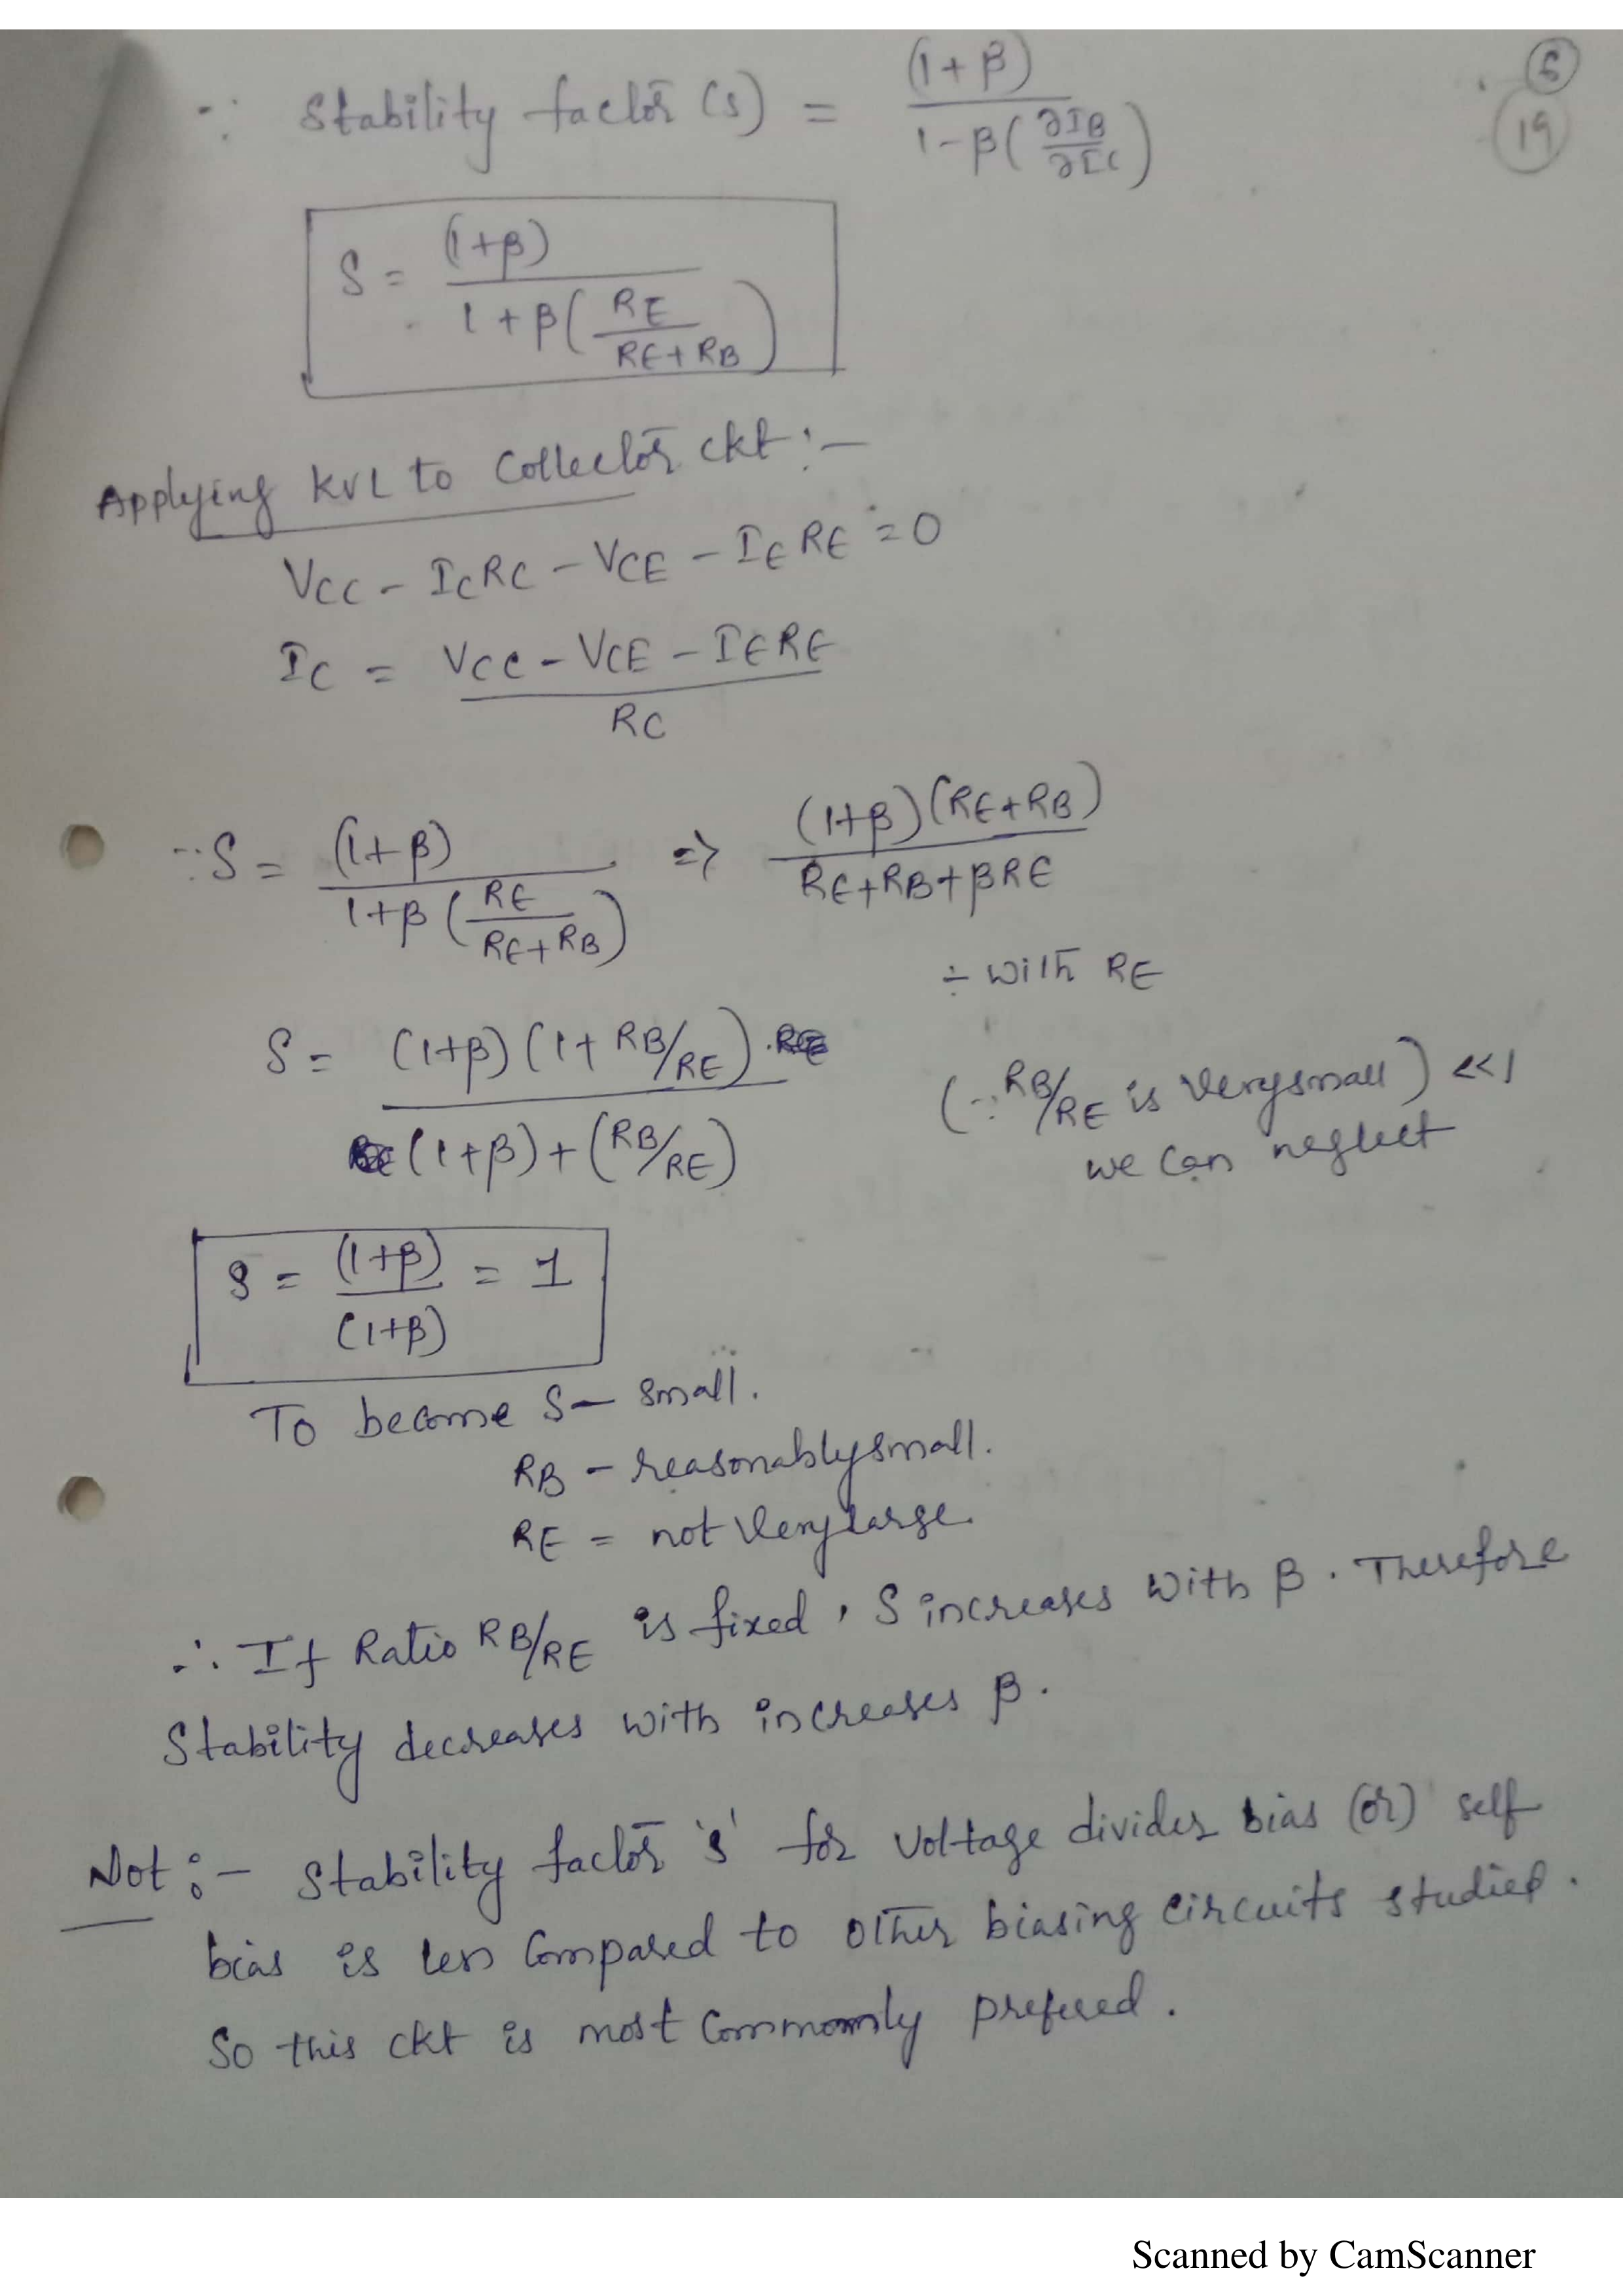 ∵ Stability factor (S) = (1+β) / 1-β(∂IB/∂IC)
6
19
S = (1+β) / 1+β(RE/RE+RB)
Applying KVL to Collector ckt :-
VCC - ICRC - VCE - IERE = 0
IC = VCC - VCE - IERE / RC
∵ S = (1+β) / 1+β(RE/RE+RB) => (1+β)(RE+RB) / RE+RB+βRE
÷ with RE
S = (1+β)(1+RB/RE) / (1+β)+(RB/RE)
(∵ RB/RE is very small) <<1
we can neglect
S = (1+β) / (1+β) = 1
To become S - small.
RB - reasonably small.
RE = not very large.
∴ If Ratio RB/RE is fixed, S increases with β. Therefore
Stability decreases with increases β.
Not :- Stability factor 's' for Voltage divider bias (or) self
bias is less Compared to other biasing circuits studied.
So this ckt is most Commonly prefered.
Scanned by CamScanner